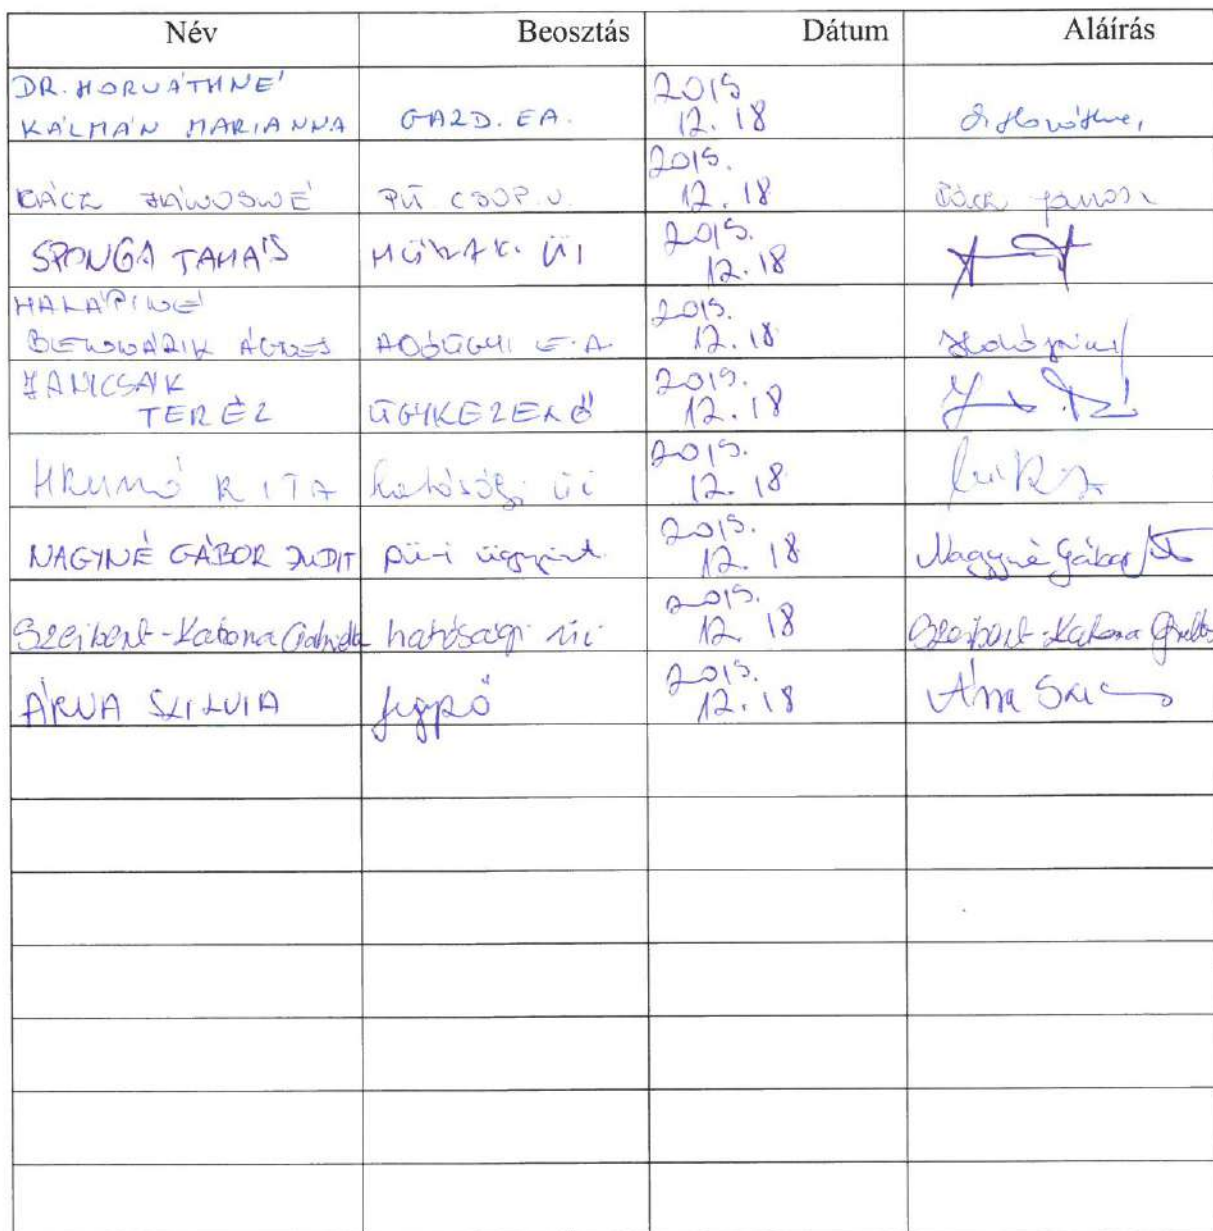 Név Beosztás Dátum Aláírás
DR. HORVÁTHNÉ
KÁLMÁN MARIANNA GAZD. EA. 2015 12. 18
RÁCZ JÁNOSNÉ PÜ CSOP. V. 2015. 12. 18 Rácz Jánosné
SPONGA TAMÁS MŰSZAK. ÜI 2015. 12. 18
HALÁPINÉ
ÁGNES ADÓÜGYI E.A. 2015. 12. 18 Halápiné
JANICSÁK
TERÉZ ÜGYKEZELŐ 2015. 12. 18
RITA hatósági üi 2015. 12. 18
NAGYNÉ GÁBOR JUDIT pü-i ügyint. 2015. 12. 18 Nagyné Gábor
Szeibert-Katona Gabriella hatósági üi 2015. 12. 18 Szeibert-Katona Gabriella
ÁRVA SZILVIA jegyző 2015. 12. 18 Árva